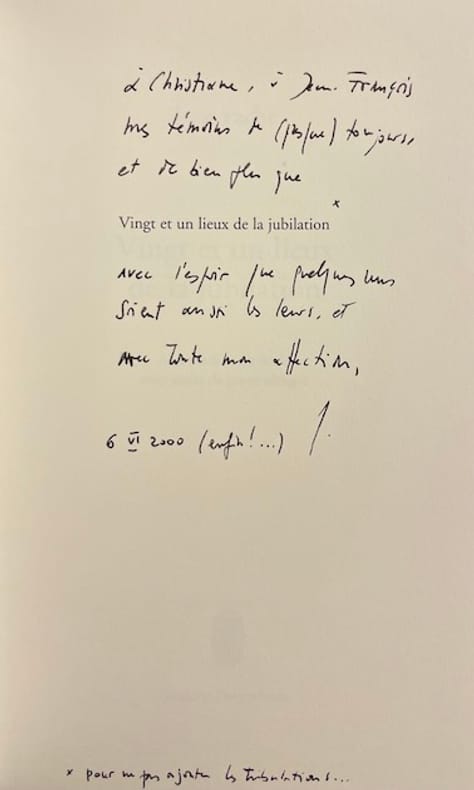 à Christiane, à Jean-François
mes témoins de (presque) toujours,
et de bien plus que
*
Vingt et un lieux de la jubilation
avec l'espoir que quelques uns
soient aussi les leurs, et
avec toute mon affection,
6 VI 2000 (enfin!...) J.
* pour ne pas ajouter les tribulations...